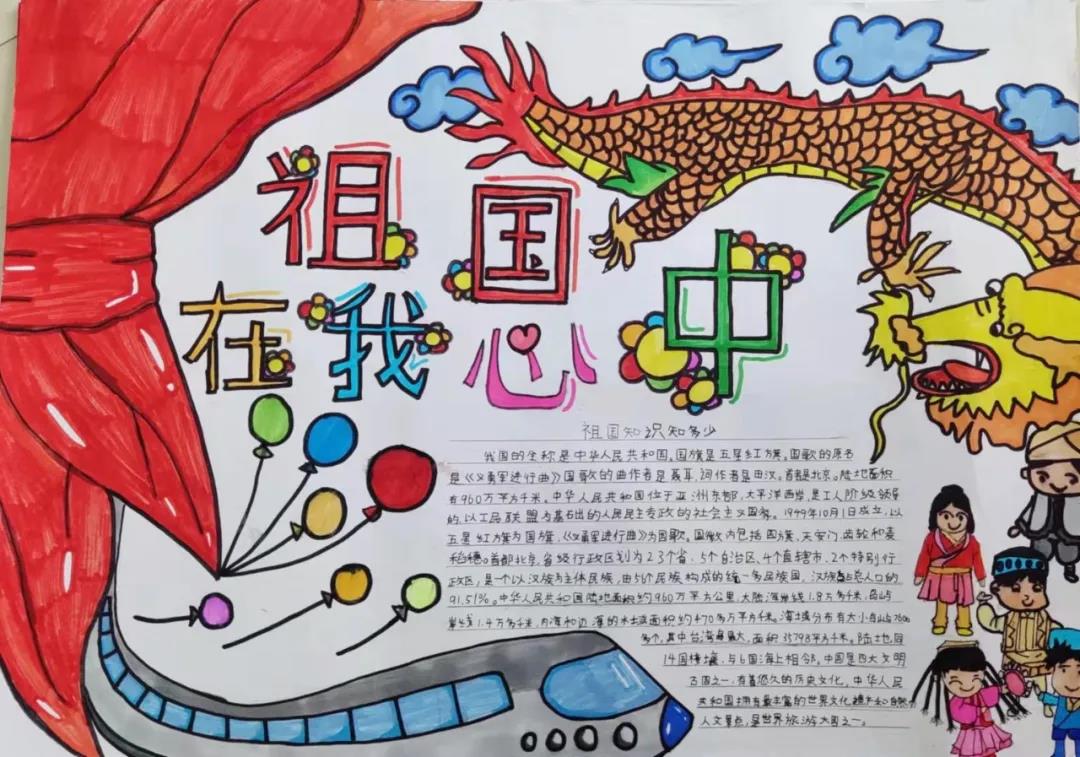 祖国
在我心中
祖国知识知多少
我国的全称是中华人民共和国。国旗是五星红旗。国歌的原名
是《义勇军进行曲》国歌的曲作者是聂耳,词作者是田汉。首都是北京。陆地面积
有960万平方千米。中华人民共和国位于亚洲东部,太平洋西岸,是工人阶级领导
的,以工农联盟为基础的人民民主专政的社会主义国家。1949年10月1日成立,以
五星红旗为国旗,《义勇军进行曲》为国歌,国徽内包括国旗、天安门、齿轮和麦
稻穗。首都北京,省级行政区划为23个省、5个自治区、4个直辖市、2个特别行
政区,是一个以汉族为主体民族,由56个民族构成的统一多民族国,汉族占总人口的
91.51%。中华人民共和国陆地面积约960万平方公里,大陆海岸线1.8万多千米,岛屿
岸线1.4万多千米,内海和边海的水域面积约470多万平方千米。海域分布有大小岛屿7600
多个,其中台湾岛最大,面积35798平方千米。陆地同
14国接壤,与6国海上相邻。中国是四大文明
古国之一,有着悠久的历史文化,中华人民
共和国拥有最丰富的世界文化和自然
人文景点,是世界旅游大国之一。